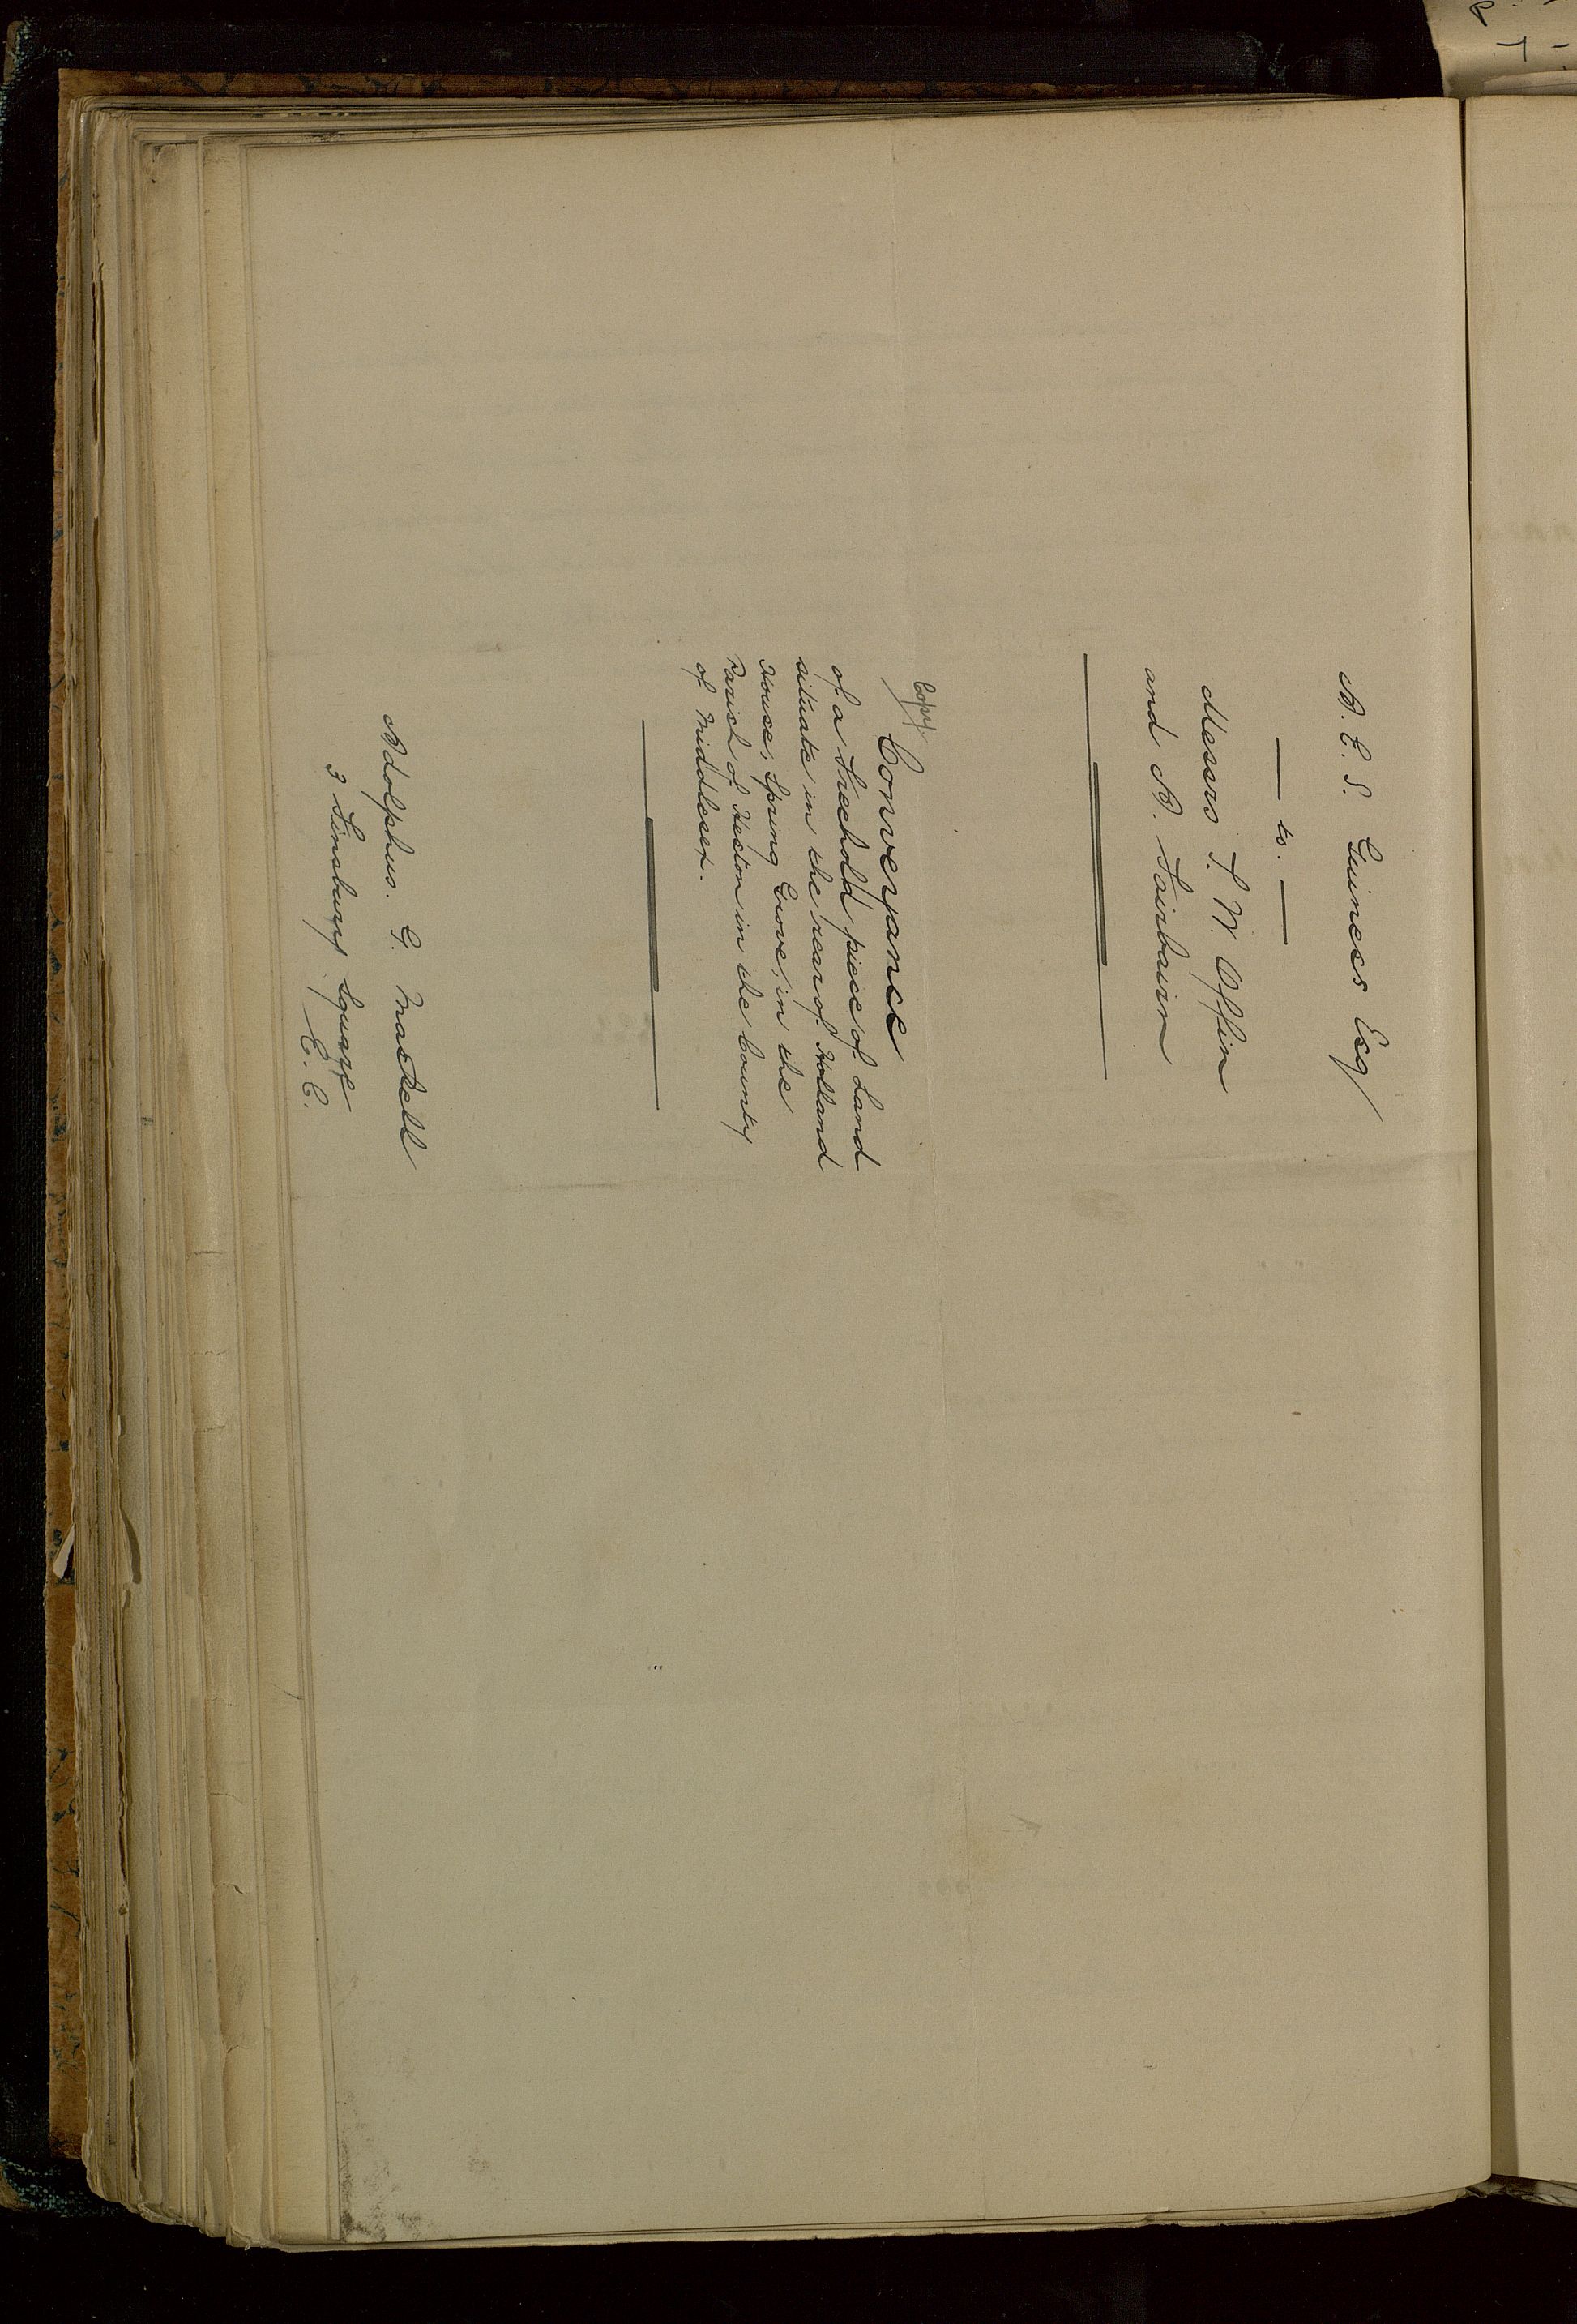 A. E. S. Guiness Esq
— to. —
Messrs T. W. Offin
and A. Fairbairn
Copy
Conveyance
of a Freehold piece of Land
situate in the rear of Holland
House, Spring Grove, in the
Parish of Heston in the County
of Middlesex.
Adolphus. G. Maskell
3 Finsbury Square
E. C.